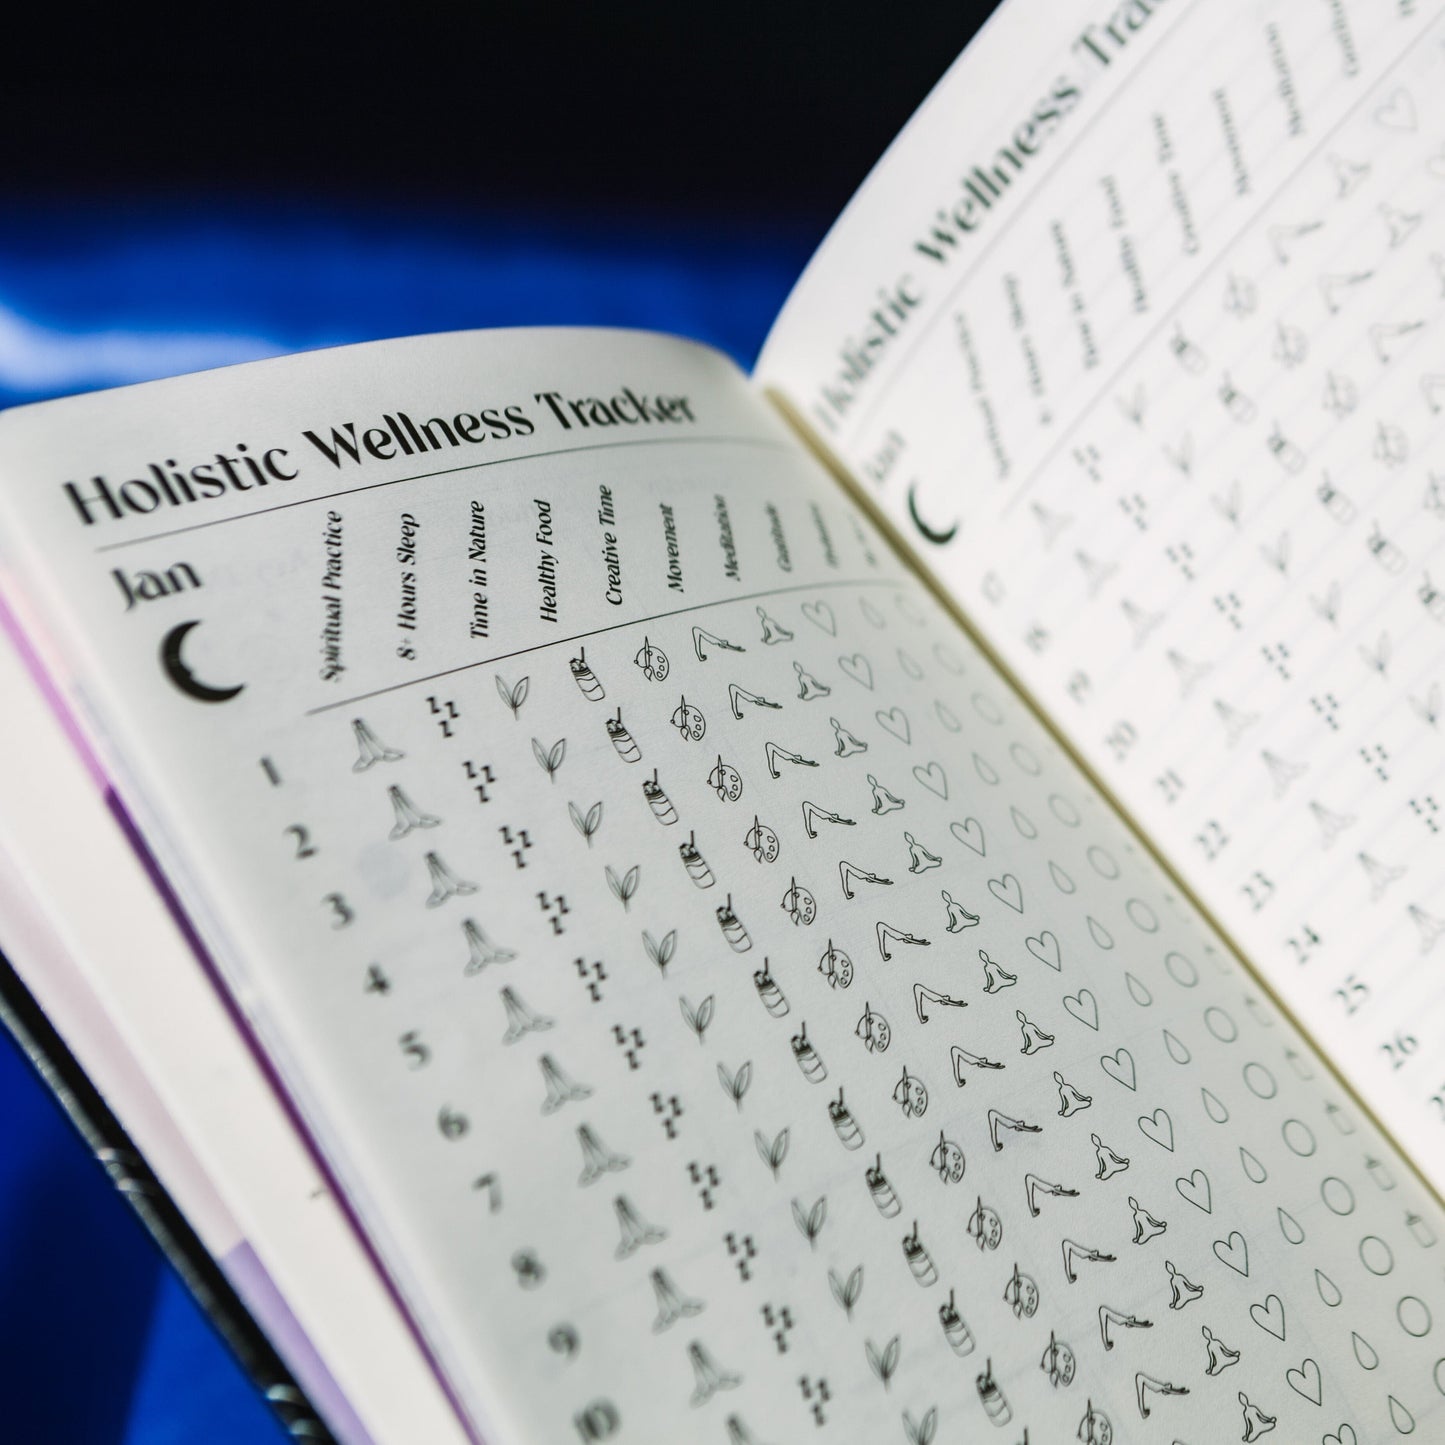 Holistic Wellness Tracker
Jan
Spiritual Practice
8+ Hours Sleep
Time in Nature
Healthy Food
Creative Time
Movement
Meditation
Gratitude
1
2
3
4
5
6
7
8
9
10
Holistic Wellness
Jan
Spiritual Practice
8+ Hours Sleep
Time in Nature
Healthy Food
Creative Time
Movement
Meditation
18
19
20
21
22
23
24
25
26